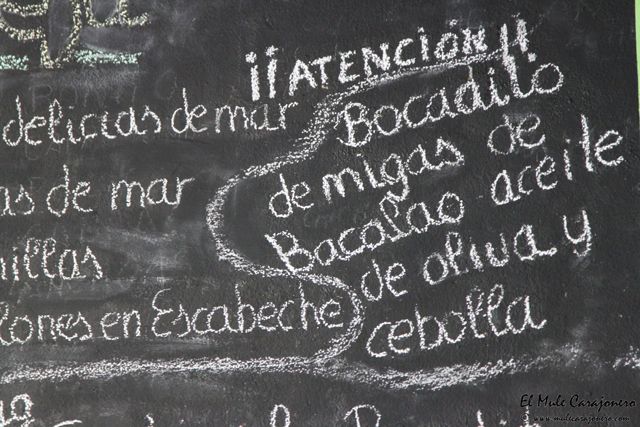 delicias de mar
as de mar
illas
lones en Escabeche
¡¡ATENCIÓN!!
Bocadillo
de migas de
Bacalao aceite
de oliva y
cebolla
El Mule Carajonero
www.mulecarajonero.com